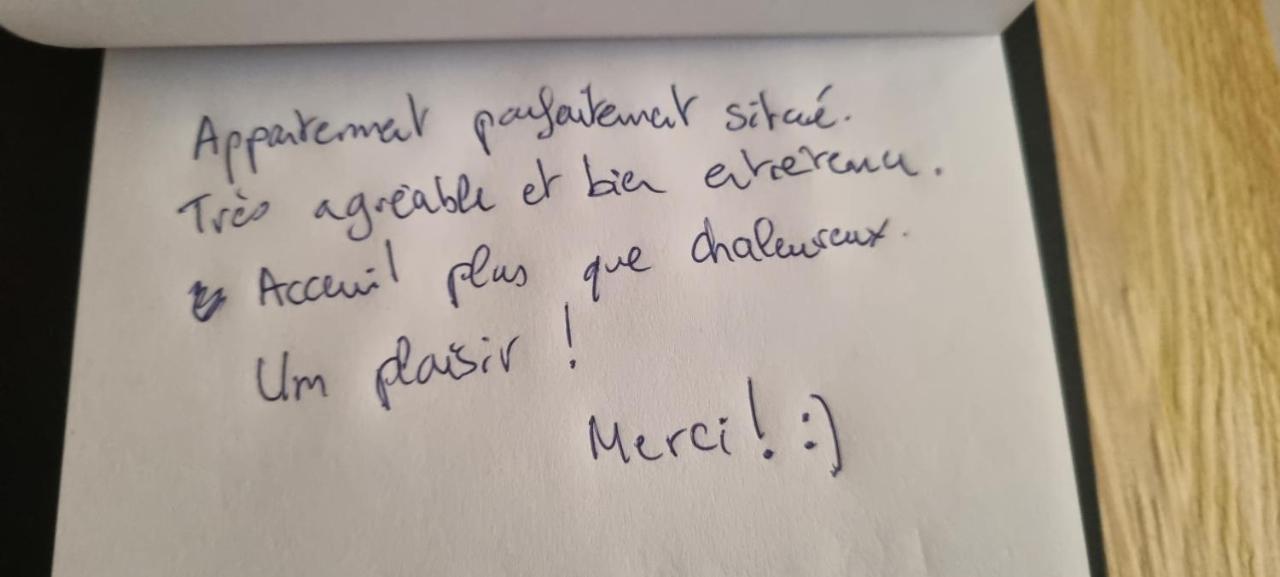 Appartement parfaitement situé.
Très agréable et bien entretenu.
Acceuil plus que chaleureux.
Um plaisir !
Merci ! :)